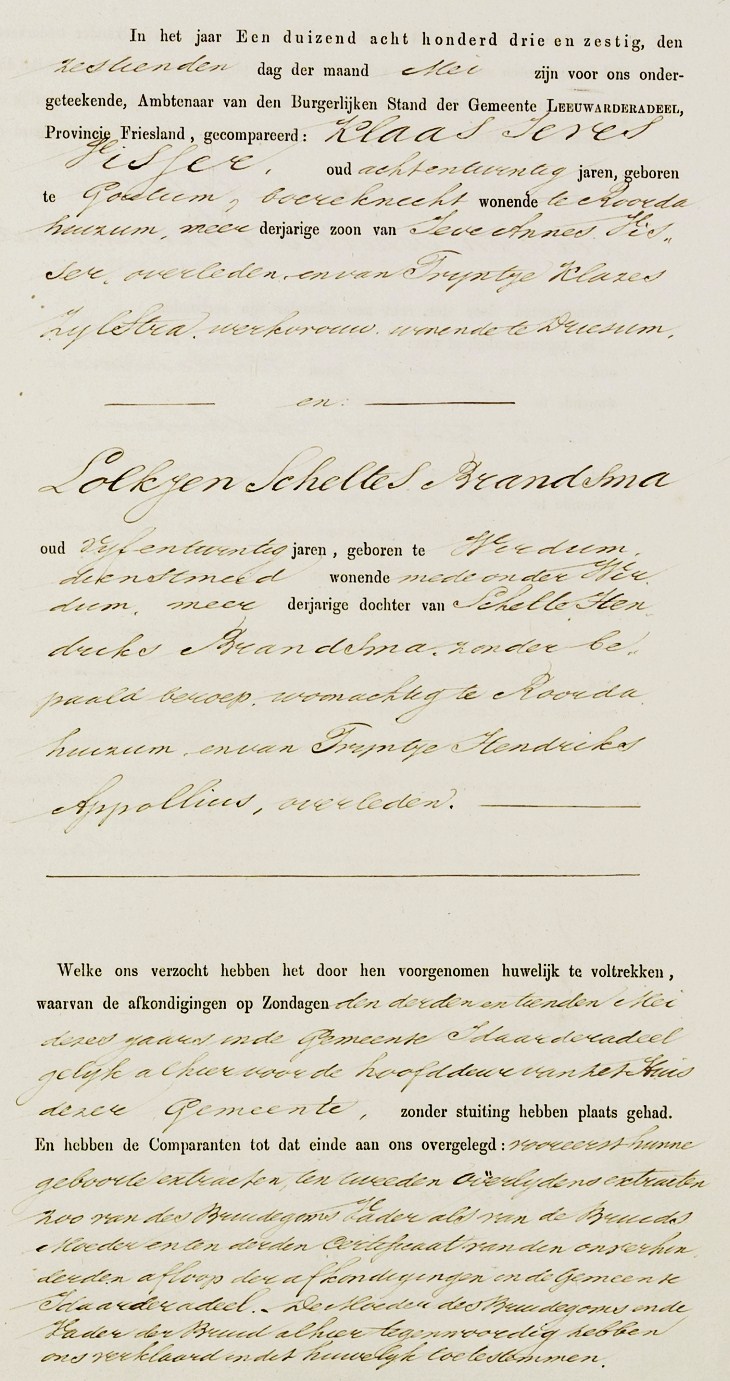 In het jaar Een duizend acht honderd drie en zestig, den
zestienden dag der maand Mei zijn voor ons onder-
geteekende, Ambtenaar van den Burgerlijken Stand der Gemeente LEEUWARDERADEEL,
Provincie Friesland, gecompareerd: Klaas Jeves
Visser, oud achtentwintig jaren, geboren
te Goutum, boereknecht wonende te Roorda
huizum, meer derjarige zoon van Jeve Annes Vis„
ser, overleden, en van Tryntje Klazes
Zylstra, werkvrouw, wonende te Driesum,
en:
Lolkjen Scheltes Brandsma
oud vyfentwintig jaren, geboren te Wirdum,
dienstmeid wonende mede onder Wir
dum, meer derjarige dochter van Schelte Hen
driks Brandsma, zonder be„
paald beroep, woonachtig te Roorda
huizum, en van Tryntje Hendriks
Appollius, overleden.
Welke ons verzocht hebben het door hen voorgenomen huwelijk te voltrekken,
waarvan de afkondigingen op Zondagen den derden en tienden Mei
dezes jaars in de Gemeente Idaarderadeel
gelyk alhier voor de hoofddeur van het Huis
dezer Gemeente, zonder stuiting hebben plaats gehad.
En hebben de Comparanten tot dat einde aan ons overgelegd: vooreerst hunne
geboorte extracten, ten tweeden overlydens extracten
zoo van des Bruidegoms Vader als van de Bruids
Moeder en ten derden Certificaat van den onverhin
derden afloop der afkondigingen in de Gemeente
Idaarderadeel. - De Moeder des Bruidegoms en de
Vader der Bruid alhier tegenwoordig hebben
ons verklaard in dit huwelyk toe te stemmen.